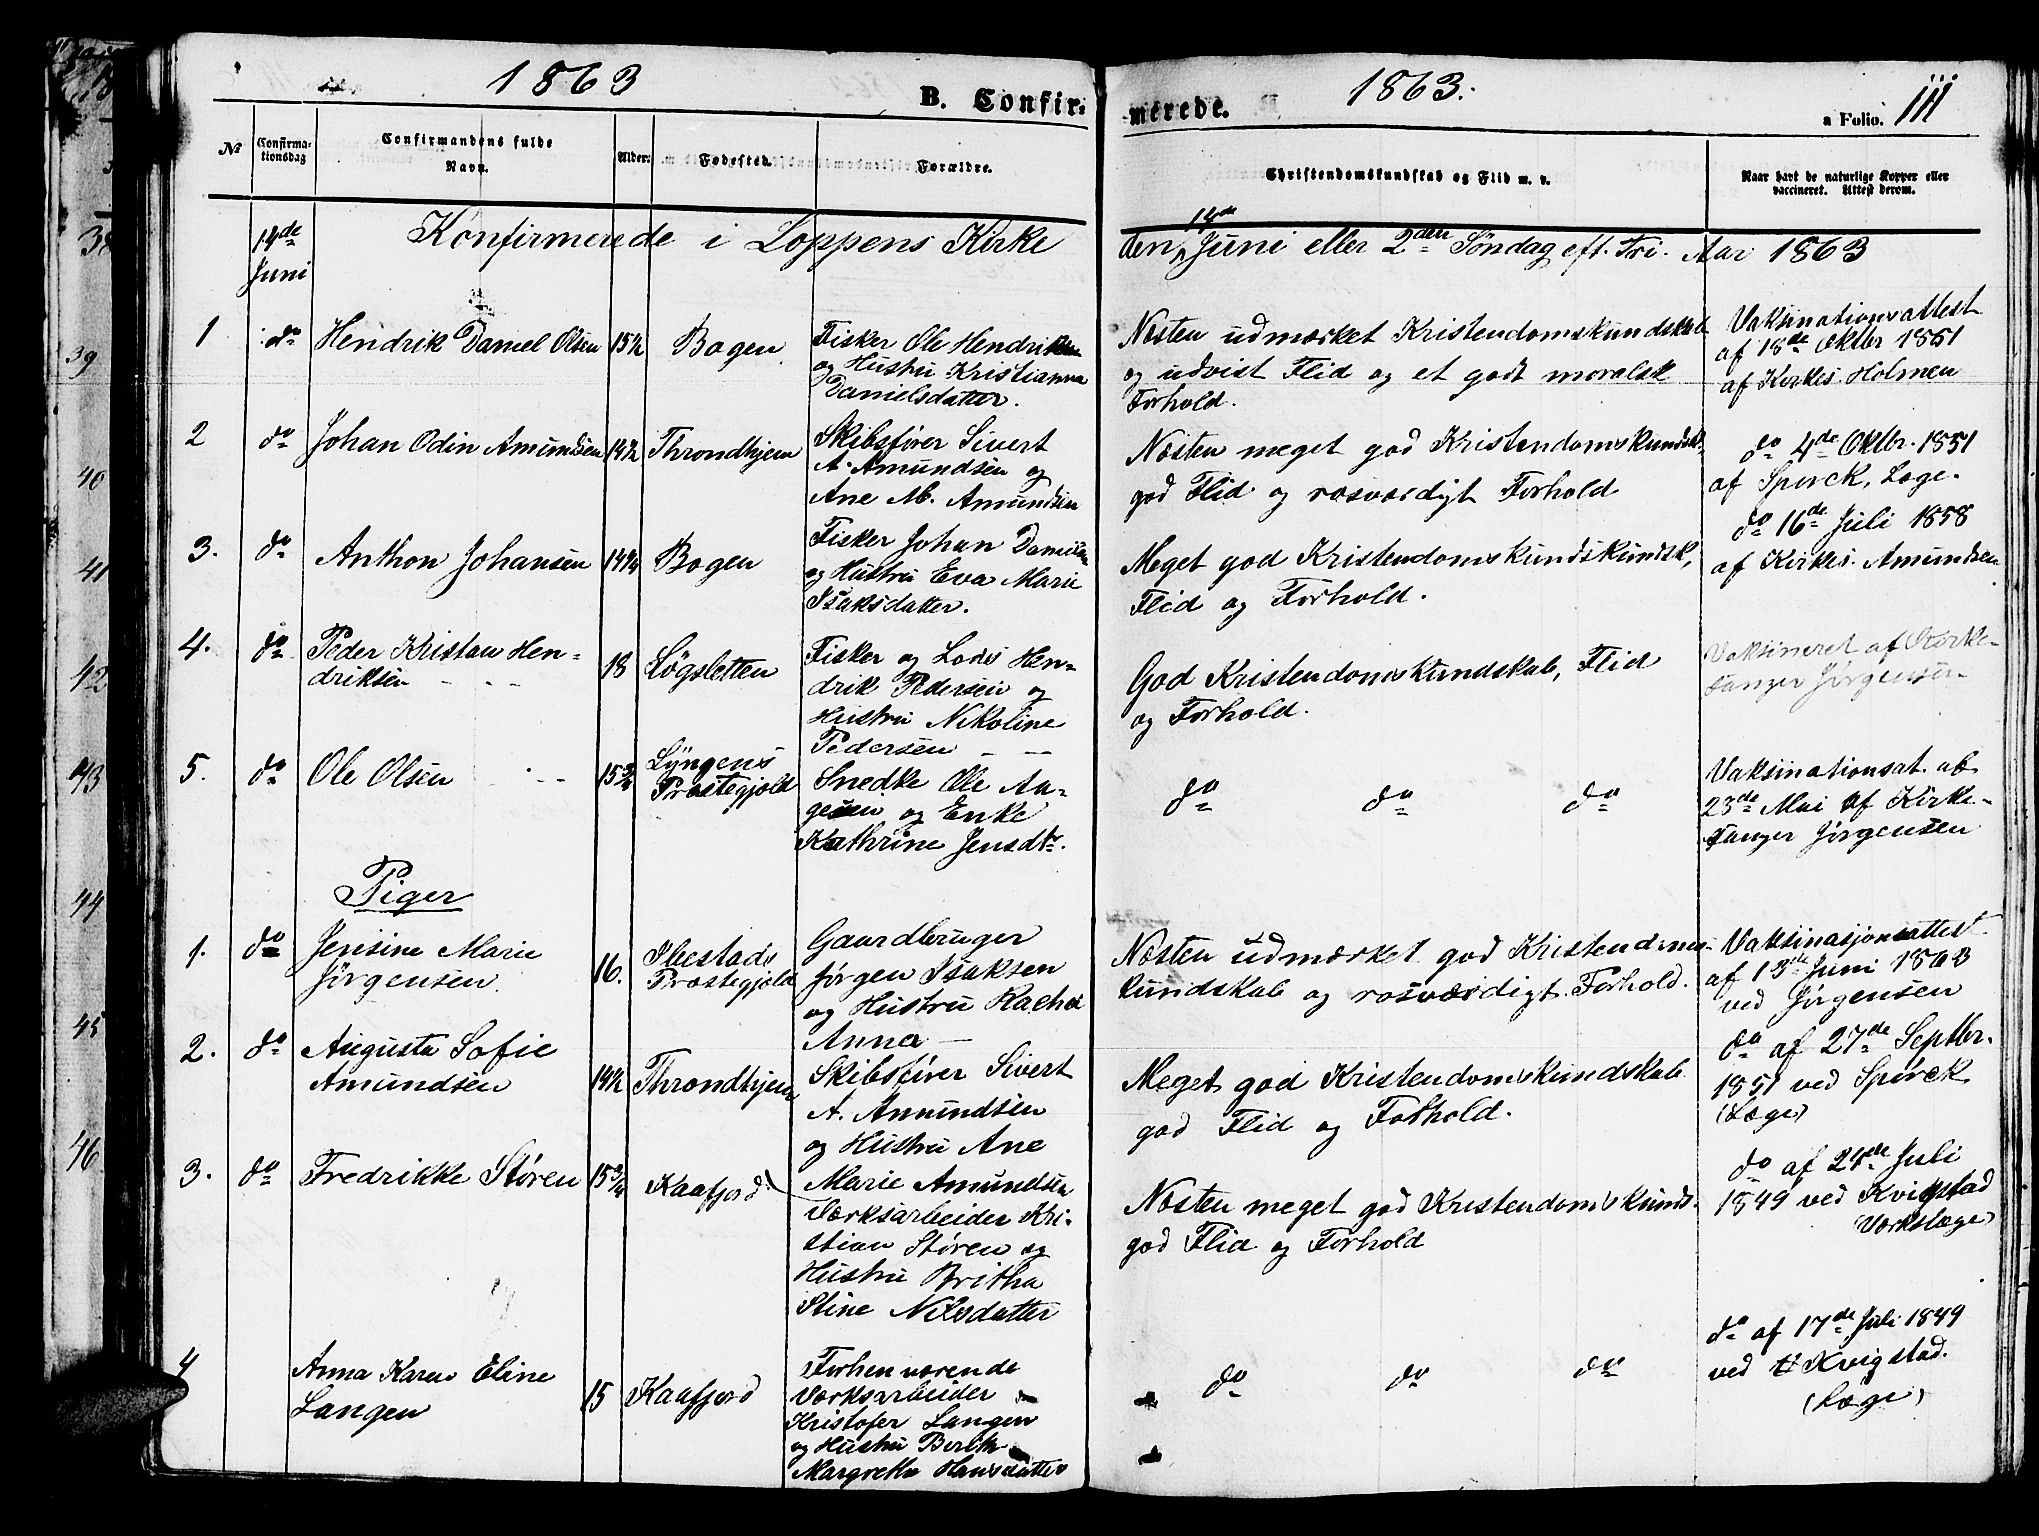 1863
B. Confirmerede.
1863.
a Folio. 111
No
Confirmationsdag
Confirmandens fulde Navn.
Alder.
Fødested.
Forældre.
Christendomskundskab og Flid m. v.
Naar havt de naturlige Kopper eller vaccineret. Attest derom.
14de Juni
Konfirmerede i Loppens Kirke
den 14de Juni eller 2den Søndag eft. Tri. Aar 1863
1
do
Hendrik Daniel Olsen
15½
Bogen
Fisker Ole Hendriksen
og Hustru Kristianna
Danielsdatter.
Næsten udmærket Kristendomskundskab
og udvist Flid og et godt moralsk
Forhold.
Vaksinationsattest
af 18de Oktbr 1851
af Kirkes. Holmen
2
do
Johan Odin Amundsen
14½
Throndhjem
Skibsfører Sivert
A. Amundsen og
Ane M. Amundsen
Næsten meget god Kristendomskundsk.
god Flid og rosværdigt Forhold
do 4de Oktbr. 1851
af Spørck, Læge.
3.
do
Anthon Johansen
14¼
Bogen
Fisker Johan Danielsen
og Hustru Eva Marie
Isaksdatter.
Meget god Kristendomskundskundsk,
Flid og Forhold.
do 16de Juli 1858
af Kirkes. Amundsen
4.
do
Peder Kristan Hen=
driksen
18
Løgsletten
Fisker og Lods Hen=
drik Pedersen og
Hustru Nikoline
Pedersen
God Kristendomskundskab, Flid
og Forhold.
Vaksineret af Kirke-
sanger Jørgensen
5.
do
Ole Olsen
15¾
Lyngens
Præstegjeld
Snedke Ole Aa-
gesen og Enke
Kathrine Jensdtr.
do do do
Vaksinationsat. af
23de Mai af Kirke-
sanger Jørgensen
Piger
1.
do
Jensine Marie
Jørgensen.
16.
Ibestads
Præstegjeld
Gaardbruger
Jørgen Isaksen
og Hustru Rachel
Anna
Næsten udmærket god Kristendoms-
kundskab og rosværdigt Forhold.
Vaksinasjonsattest
af 13de Juni 1863
ved Jørgensen
2.
do
Augusta Sofie
Amundsen
14½
Throndhjem
Skibsfører Sivert
A. Amundsen
og Hustru Ane
Marie Amundsen
Meget god Kristendomskundskab
god Flid og Forhold.
do af 27de Septbr.
1851 ved Spørck
(Læge)
3.
do
Fredrikke Støren
15¾
Kaafjord
Værksarbeider Kri-
stian Støren og
Hustru Britha
Stine Nilsdatter
Næsten meget god Kristendomskunds.
god Flid og Forhold
do af 24de Juli
1849 ved Kvigstad
(Værkslæge)
4
Anna Karen Eline
Langen
15
Kaafjord
Forhenværende
Værksarbeider
Kristofer Langen
og Hustru Berith
Margrethe Hansdatter
do do do
do af 17de Juli 1849
ved Kvigstad.
(Læge)
38
39
40
41
42
43
44
45
46